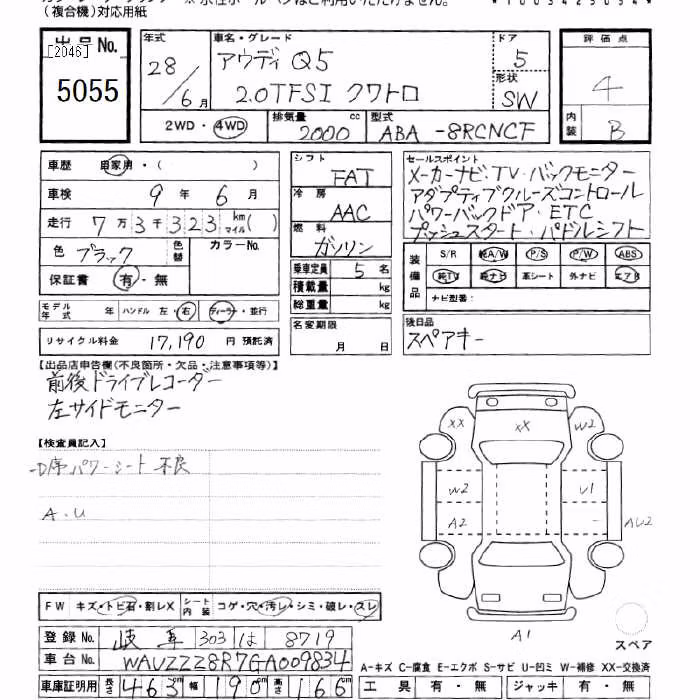 (複合機)対応用紙
出品No.
[2046]
5055
年式
28/6月
車名・グレード
アウディ Q5
2.0TFSI クワトロ
ドア
5
形状
SW
2WD・4WD
排気量
2000 cc
型式
ABA -8RCNCF
評価点
4
内装
B
車歴 自家用・( )
車検 9年 6月
走行 7万3千323 km マイル( )
色 ブラック 色替
カラーNo.
保証書 有・無
モデル年式 年 ハンドル 左・右 ディーラー・並行
リサイクル料金 17,190 円 預託済
シフト
FAT
冷房
AAC
燃料
ガソリン
乗車定員 5 名
積載量 kg
総重量 kg
名変期限
月 日
セールスポイント
メーカーナビ.TV.バックモニター
アダプティブクルーズコントロール
パワーバックドア.ETC
プッシュスタート・パドルシフト
装備品
S/R 純A/W P/S P/W ABS
純TV 純ナビ 革シート 外ナビ エアB
ナビ型番:
後日品
スペアキー
【出品店申告欄(不良箇所・欠品・注意事項等)】
前後ドライブレコーダー
左サイドモニター
【検査員記入】
D席パワーシート不良
A.U
XX
XX
W2
W2
U1
A2
AU2
A1
スペア
FW キズ・トビ石・割レX シート内装 コゲ・穴・汚レ・シミ・破レ・スレ
登録No. 岐阜 303 は 8719
車台No. WAUZZZ8R7GA009834
車庫証明用 長さ 463 幅 190 高さ 166 cm
A-キズ C-腐食 E-エクボ S-サビ U-凹ミ W-補修 XX-交換済
工具 有・無 ジャッキ 有・無